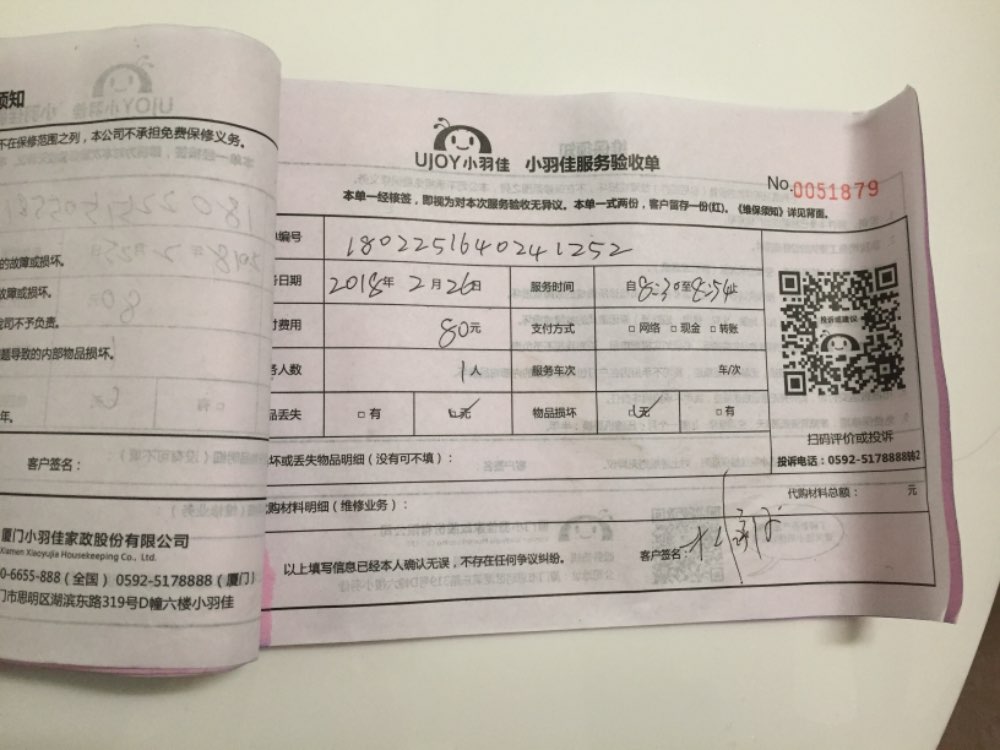 须知
不在保修范围之列，本公司不承担免费保修义务。
的故障或损坏。
故障或损坏。
公司不予负责。
题导致的内部物品损坏。
年。
客户签名：
厦门小羽佳家政股份有限公司
Xiamen Xiaoyujia Housekeeping Co., Ltd.
0-6655-888（全国） 0592-5178888（厦门）
门市思明区湖滨东路319号D幢六楼小羽佳
UJOY小羽佳 小羽佳服务验收单
No.0051879
本单一经核签，即视为对本次服务验收无异议。本单一式两份，客户留存一份(红)。《维保须知》详见背面。
编号 1802251640241252
日期 2018年 2月26日 服务时间 自8:30至8:54止
费用 80元 支付方式 □网络 □现金 □转账
人数 1人 服务车次 车/次
品丢失 □有 □无 物品损坏 □无 □有
投诉或建议
扫码评价或投诉
投诉电话：0592-5178888转2
坏或丢失物品明细（没有可不填）：
代购材料明细（维修业务）：
代购材料总额： 元
以上填写信息已经本人确认无误，不存在任何争议纠纷。
客户签名：